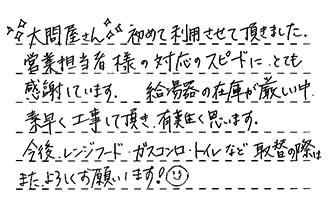 大問屋さん 初めて利用させて頂きました。
営業担当者様の対応のスピードに、とても
感謝しています。 給湯器の在庫が厳しい中
素早く工事して頂き、有難く思います。
今後、レンジフード・ガスコンロ・トイレなど取替の際は
また、よろしくお願いします!